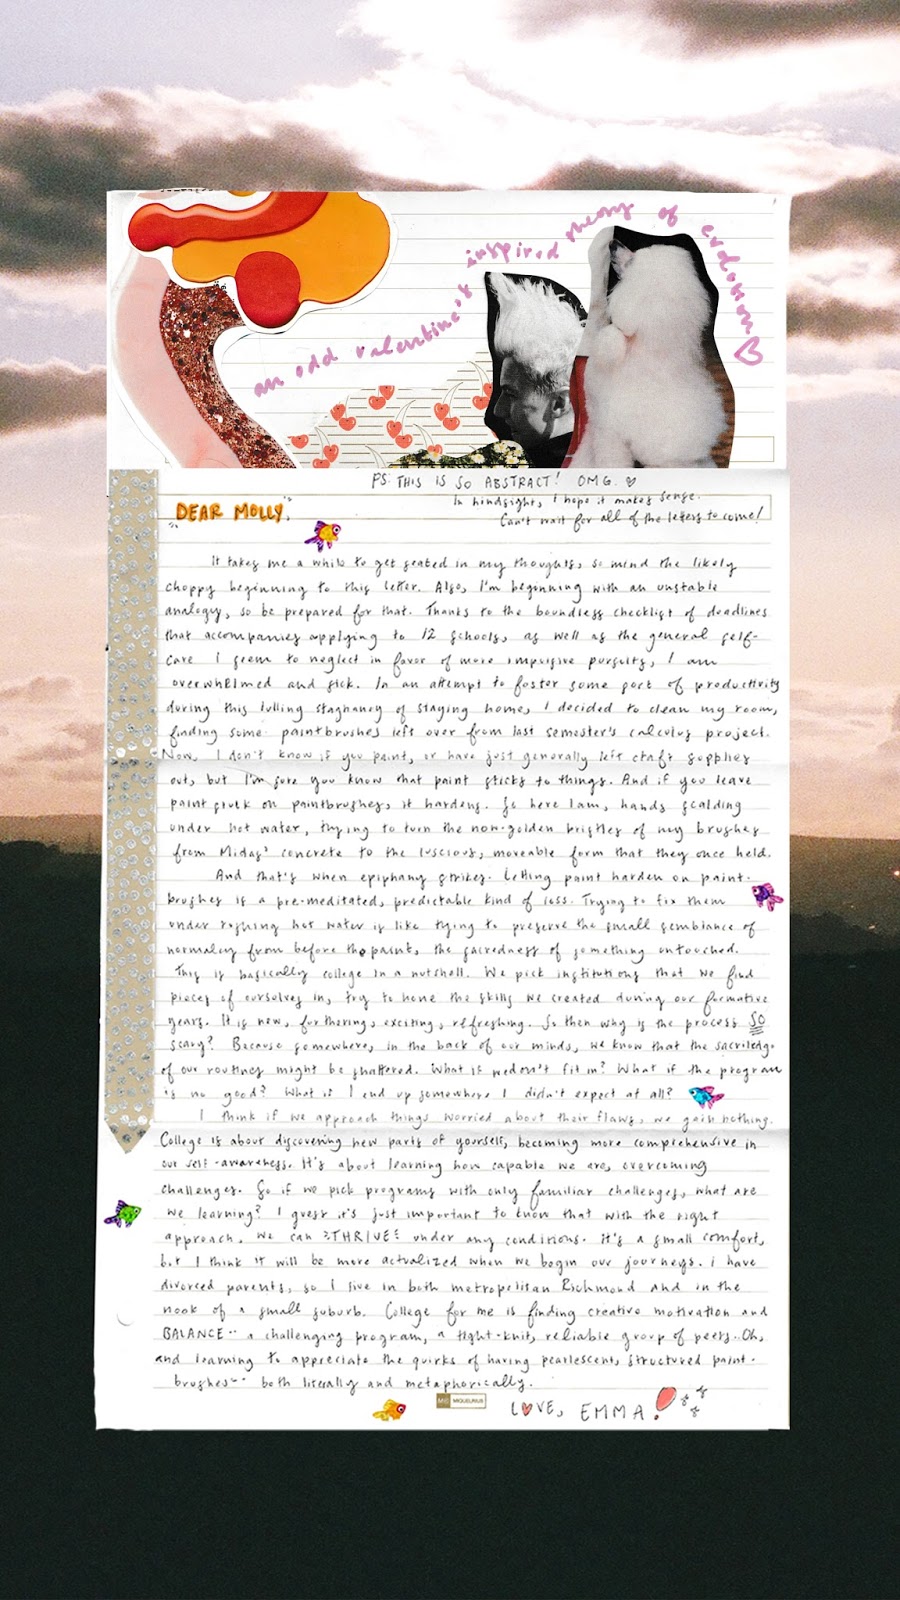 an odd valentine's inspired theory of
PS: THIS IS SO ABSTRACT! OMG. ♡
In hindsight, I hope it makes sense.
"DEAR MOLLY,"
Can't wait for all of the letters to come!
It takes me a while to get seated in my thoughts, so mind the likely
choppy beginning to this letter. Also, I'm beginning with an unstable
analogy, so be prepared for that. Thanks to the boundless checklist of deadlines
that accompanies applying to 12 schools, as well as the general self-
care I seem to neglect in favor of more impulsive pursuits, I am
overwhelmed and sick. In an attempt to foster some sort of productivity
during this lulling stagnancy of staying home, I decided to clean my room,
finding some paintbrushes left over from last semester's calculus project.
Now, I don't know if you paint, or have just generally left craft supplies
out, but I'm sure you know that paint sticks to things. And if you leave
paint stuck on paintbrushes, it hardens. So here I am, hands scalding
under hot water, trying to turn the non-golden bristles of my brushes
from Midas' concrete to the luscious, moveable form that they once held.
And that's when epiphany strikes. Letting paint harden on paint-
brushes is a pre-meditated, predictable kind of loss. Trying to fix them
under rushing hot water is like trying to preserve the small semblance of
normalcy from before the paint, the sacredness of something untouched.
This is basically college in a nutshell. We pick institutions that we find
pieces of ourselves in, try to hone the skills we created during our formative
years. It is new, furthering, exciting, refreshing. So then why is the process SO
scary? Because somewhere, in the back of our minds, we know that the
of our routines might be shattered. What if we don't fit in? What if the program
is no good? What if I end up somewhere I didn't expect at all?
I think if we approach things worried about their flaws, we gain nothing.
College is about discovering new parts of yourself, becoming more comprehensive in
our self-awareness. It's about learning how capable we are, overcoming
challenges. So if we pick programs with only familiar challenges, what are
we learning? I guess it's just important to know that with the right
approach, we can THRIVE under any conditions. It's a small comfort,
but I think it will be more actualized when we begin our journeys. I have
divorced parents, so I live in both metropolitan Richmond and in the
nook of a small suburb. College for me is finding creative motivation and
BALANCE -- a challenging program, a tight-knit, reliable group of peers. Oh,
and learning to appreciate the quirks of having pearlescent, structured paint-
brushes -- both literally and metaphorically.
MIQUELRIUS
LOVE, EMMA!